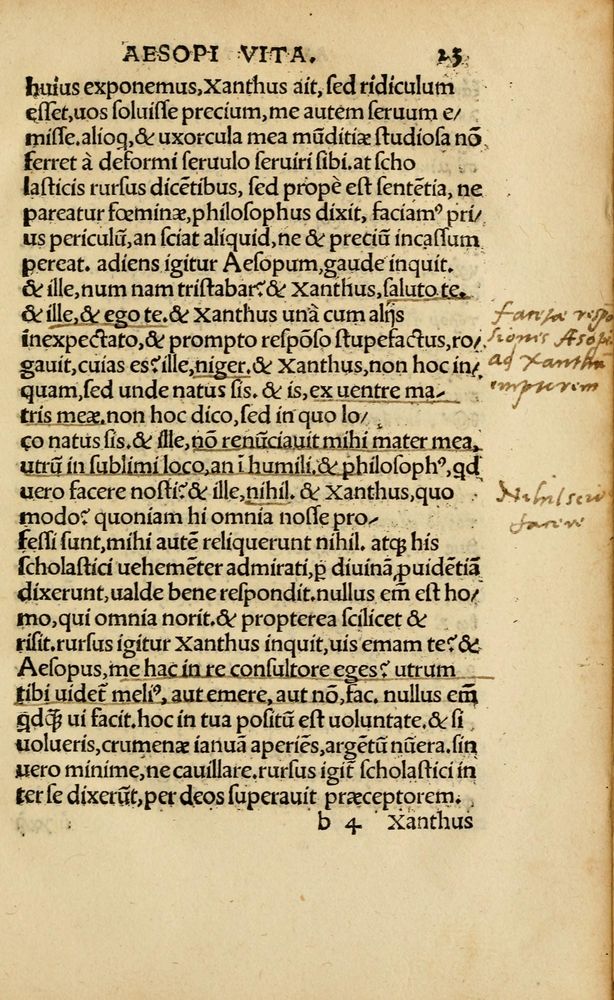 AESOPI VITA. 25
huius exponemus, Xanthus ait, sed ridiculum
esset, uos soluisse precium, me autem seruum e/
misse. alioq, & uxorcula mea mūditiæ studiosa nō
ferret à deformi seruulo seruiri sibi. at scho
lasticis rursus dicētibus, sed propè est sentētia, ne
pareatur fœminæ, philosophus dixit, faciamꝰ pri/
us periculū, an sciat aliquid, ne & preciū incassum
pereat. adiens igitur Aesopum, gaude inquit.
& ille, num nam tristabar? & Xanthus, saluto te.
& ille, & ego te. & Xanthus unà cum alijs
inexpectato, & prompto respōso stupefactus, ro/
gauit, cuias es? ille, niger. & Xanthus, non hoc in/
quam, sed unde natus sis. & is, ex uentre ma/
tris meæ. non hoc dico, sed in quo lo/
co natus sis. & ille, nō renūciauit mihi mater mea,
utrū in sublimi loco, an ī humili. & philosophꝰ, qd
uero facere nosti? & ille, nihil. & Xanthus, quo
modo? quoniam hi omnia nosse pro/
fessi sunt, mihi autē reliquerunt nihil. atq̃ his
scholastici uehemēter admirati, ꝑ diuinā ꝓuidētiā
dixerunt, ualde bene respondit. nullus em̄ est ho/
mo, qui omnia norit. & propterea scilicet &
risit. rursus igitur Xanthus inquit, uis emam te? &
Aesopus, me hac in re consultore eges? utrum
tibi uidet̄ meliꝰ, aut emere, aut nō, fac. nullus em̄
qdq̃ ui facit. hoc in tua positū est uoluntate. & si
uolueris, crumenæ ianuā aperiēs, argētū nūera. sin
uero minime, ne cauillare. rursus igit̄ scholastici in
ter se dixerūt, per deos superauit præceptorem.
b 4 Xanthus
respo
sionis Æsopi
ad Xanthū
Nihil scire
facere